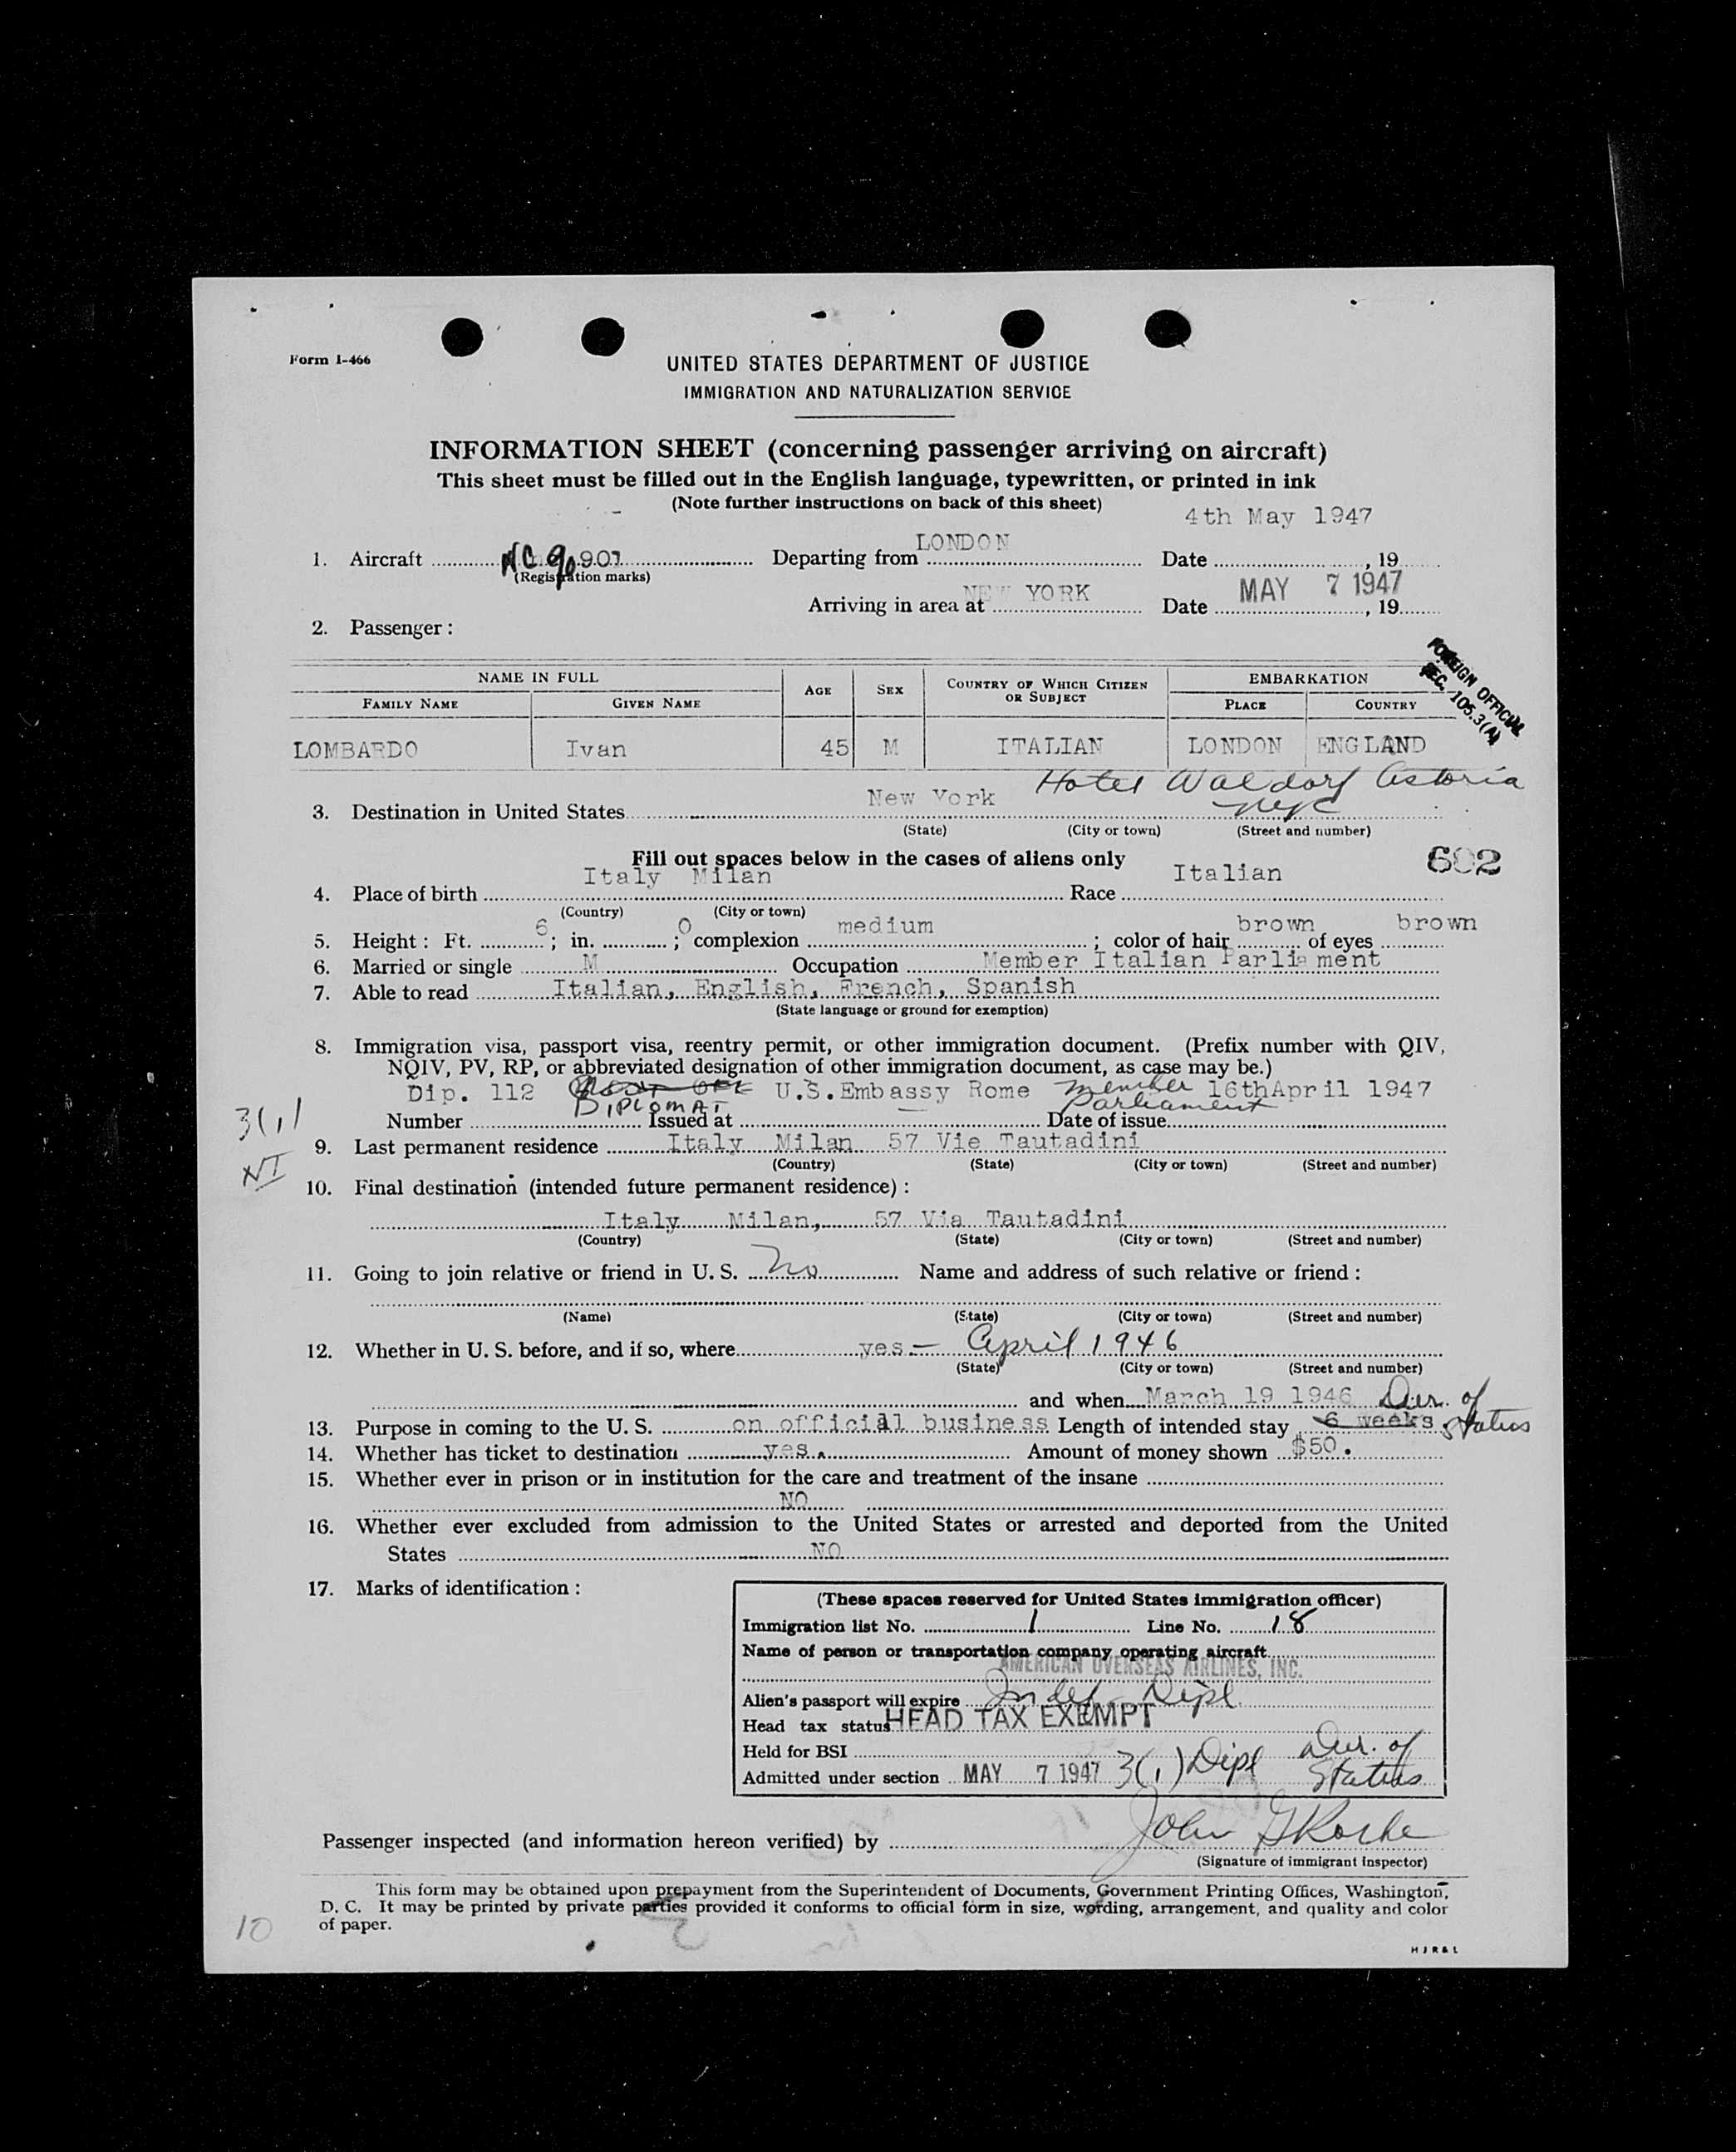 Form I-466
UNITED STATES DEPARTMENT OF JUSTICE
IMMIGRATION AND NATURALIZATION SERVICE
INFORMATION SHEET (concerning passenger arriving on aircraft)
This sheet must be filled out in the English language, typewritten, or printed in ink
(Note further instructions on back of this sheet)
4th May 1947
1. Aircraft NC 90907 Departing from LONDON Date , 19
(Registration marks)
Arriving in area at NEW YORK Date MAY 7 1947 , 19
2. Passenger :
FOREIGN OFFICIAL
SEC. 105.3(A)
NAME IN FULL AGE SEX COUNTRY OF WHICH CITIZEN OR SUBJECT EMBARKATION
FAMILY NAME GIVEN NAME PLACE COUNTRY
LOMBARDO Ivan 45 M ITALIAN LONDON ENGLAND
Hotel Waldorf Astoria
3. Destination in United States New York NYC
(State) (City or town) (Street and number)
Fill out spaces below in the cases of aliens only
602
4. Place of birth Italy Milan Race Italian
(Country) (City or town)
5. Height : Ft. 6 ; in. 0 ; complexion medium ; color of hair brown of eyes brown
6. Married or single M Occupation Member Italian Parliament
7. Able to read Italian, English, French, Spanish
(State language or ground for exemption)
8. Immigration visa, passport visa, reentry permit, or other immigration document. (Prefix number with QIV,
NQIV, PV, RP, or abbreviated designation of other immigration document, as case may be.)
Dip. 112 U.S.Embassy Rome member 16thApril 1947
DIPLOMAT Parliament
3(1)
Number Issued at Date of issue
NI
9. Last permanent residence Italy Milan 57 Vie Tautadini
(Country) (State) (City or town) (Street and number)
10. Final destination (intended future permanent residence) :
Italy Milan, 57 Via Tautadini
(Country) (State) (City or town) (Street and number)
11. Going to join relative or friend in U. S. No Name and address of such relative or friend :
(Name) (State) (City or town) (Street and number)
12. Whether in U. S. before, and if so, where yes - April 1946
(State) (City or town) (Street and number)
and when March 19 1946 Dur. of
13. Purpose in coming to the U. S. on official business Length of intended stay 6 weeks Status
14. Whether has ticket to destination yes. Amount of money shown $50.
15. Whether ever in prison or in institution for the care and treatment of the insane
NO
16. Whether ever excluded from admission to the United States or arrested and deported from the United
States NO
17. Marks of identification :
(These spaces reserved for United States immigration officer)
Immigration list No. 1 Line No. 18
Name of person or transportation company operating aircraft
AMERICAN OVERSEAS AIRLINES, INC.
Alien's passport will expire Indef - Dipl
Head tax status HEAD TAX EXEMPT
Held for BSI Dur. of
Admitted under section MAY 7 1947 3(1) Dipl Status
Passenger inspected (and information hereon verified) by John G Rorke
(Signature of immigrant inspector)
This form may be obtained upon prepayment from the Superintendent of Documents, Government Printing Offices, Washington,
D. C. It may be printed by private parties provided it conforms to official form in size, wording, arrangement, and quality and color
of paper.
10
H J R & L